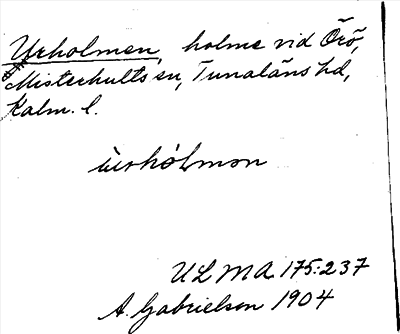 Urholmen, holme vid Örö,
Misterhults sn, Tunaläns hd,
Kalm. l.
ùrhòlmən
ULMA 175:237
A. Gabrielson 1904